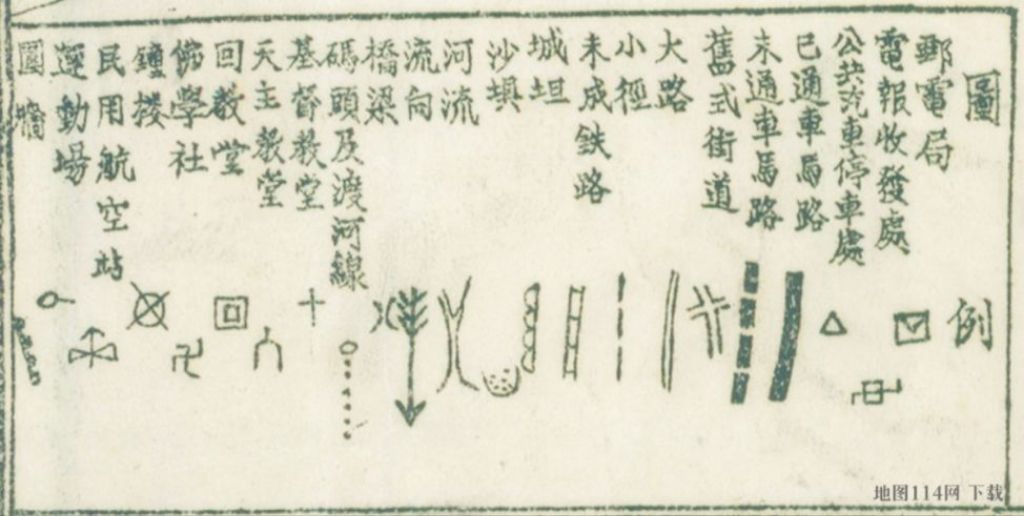 圖例
郵電局
電報收發處
公共汽車停車處
已通車馬路
未通車馬路
舊式街道
大路
小徑
未成鉄路
城垣
沙塤
河流
流向
橋梁
碼頭及渡河線
基督教堂
天主教堂
回教堂
佛學社
鐘楼
民用航空站
運動場
圍牆
地图114网 下载